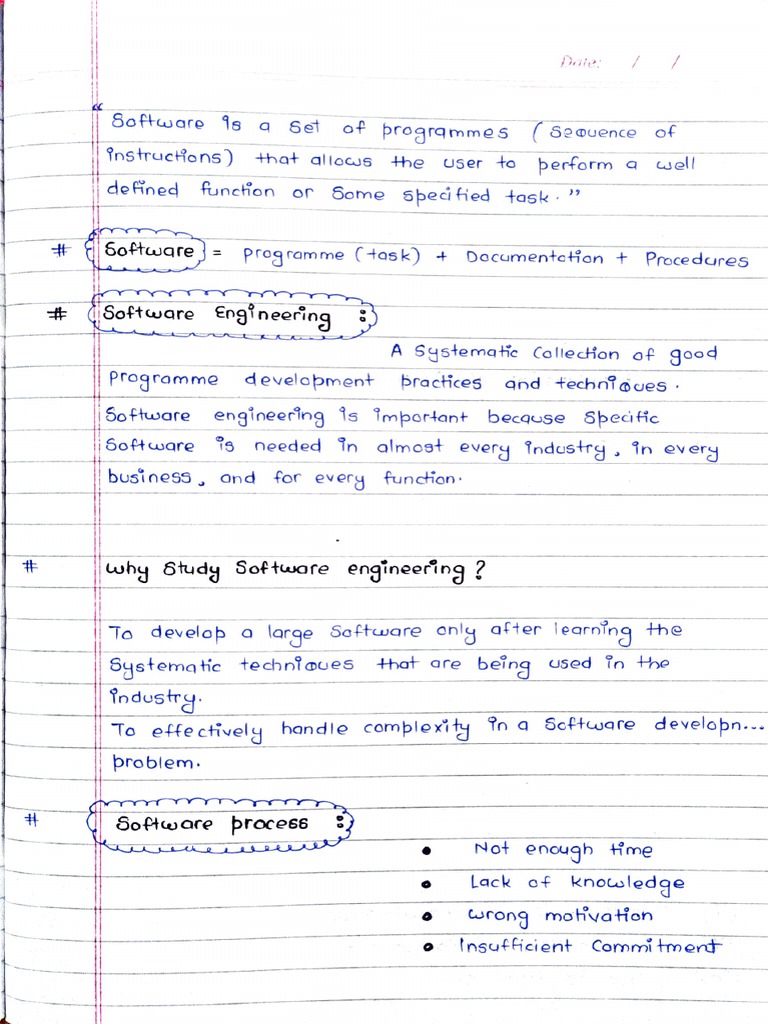 Date: / /
“
Software is a set of programmes (Sequence of
instructions) that allows the user to perform a well
defined function or some specified task.”
# Software = programme (task) + Documentation + Procedures
# Software Engineering :
A Systematic Collection of good
programme development practices and techniques.
Software engineering is important because specific
software is needed in almost every industry, in every
business, and for every function.
# why study software engineering?
To develop a large software only after learning the
systematic techniques that are being used in the
industry.
To effectively handle complexity in a software developn...
problem.
# Software process :
• Not enough time
• Lack of knowledge
• wrong motivation
• Insufficient Commitment